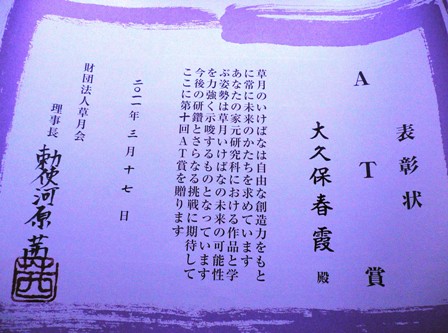 表彰状
ATT賞
大久保春霞 殿
草月のいけばなは自由な創造力をもと
に常に未来のかたちを求めています
あなたの家元研究科における作品と学
ぶ姿勢は草月いけばなの未来の可能性
を力強く示唆するものとなっています
今後の研鑽とさらなる挑戦に期待して
ここに第十回AT賞を贈ります
二〇一一年三月十七日
財団法人草月会
理事長 勅使河原茜
茜